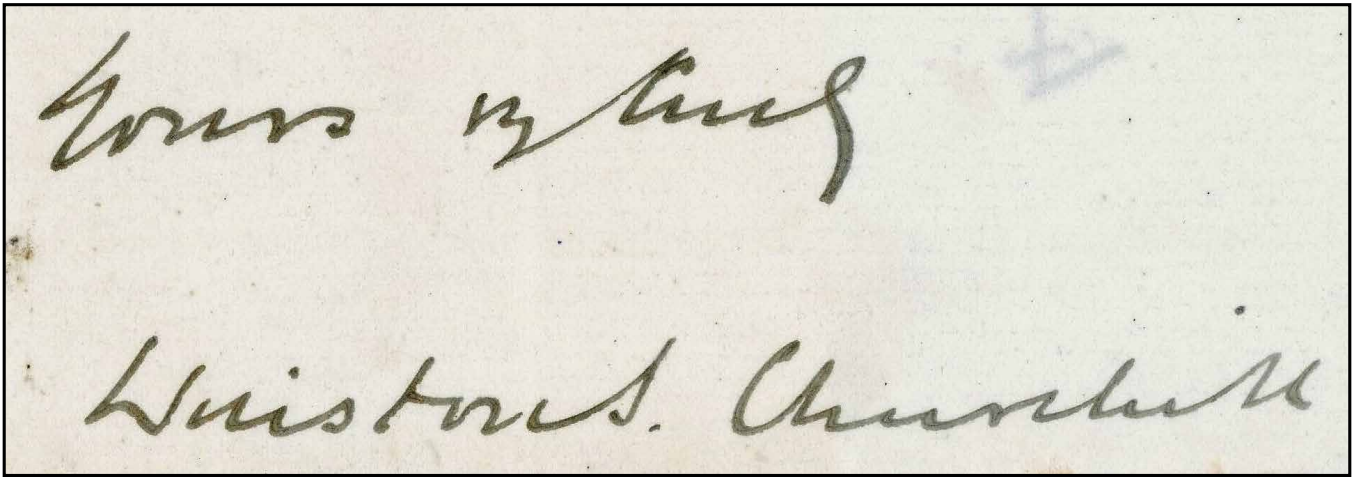 Yours vy truly
Winston S. Churchill